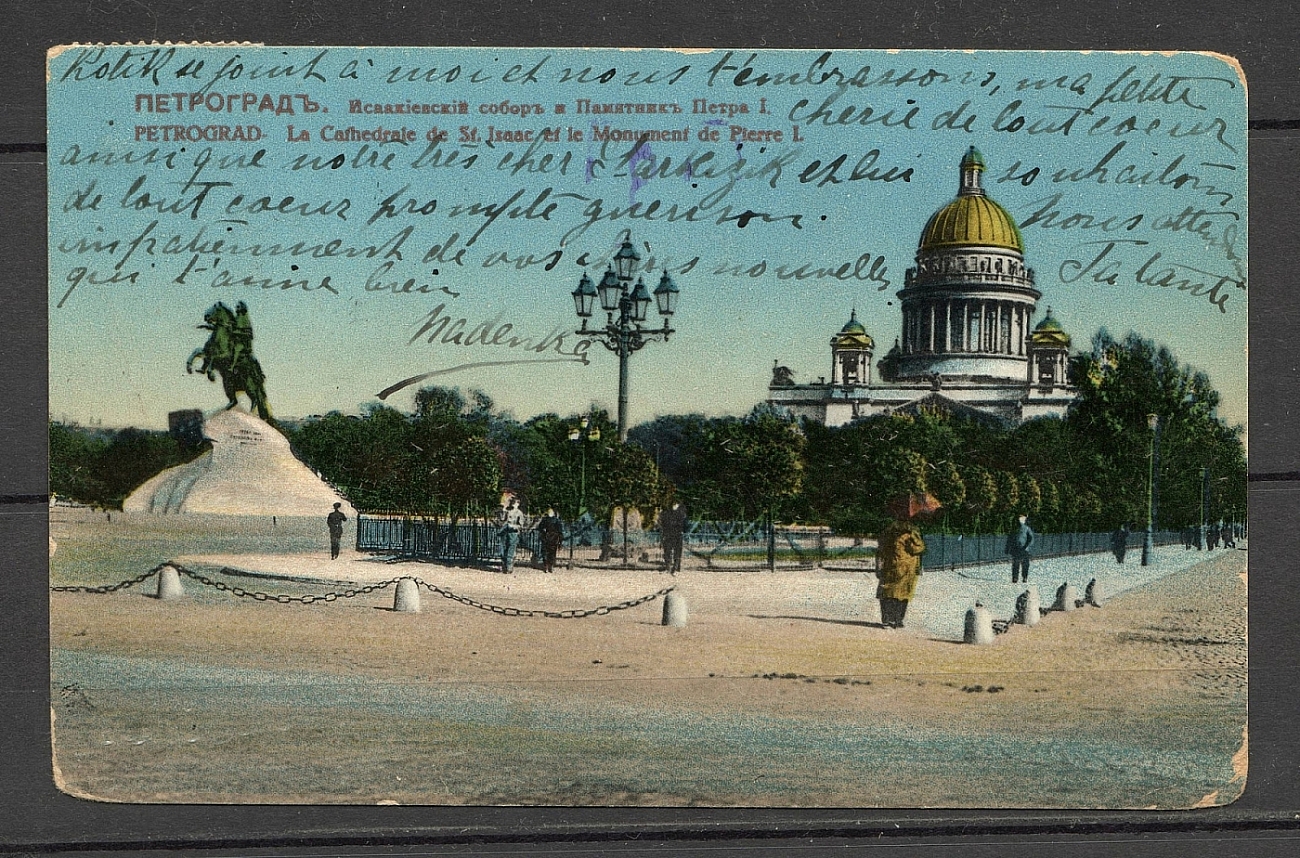 Kotik se joint à moi et nous t'embrassons, ma petite
ПЕТРОГРАДЪ. Исаакіевскій соборъ и Памятникъ Петра I.
chérie de tout coeur
PETROGRAD- La Cathedrale de St. Isaac et le Monument de Pierre I.
ainsi que notre très cher et lui souhaitons
de tout coeur prompte guérison. Nous attendons
impatiemment de vos nouvelles
Ta tante
qui t'aime bien
Nadenka